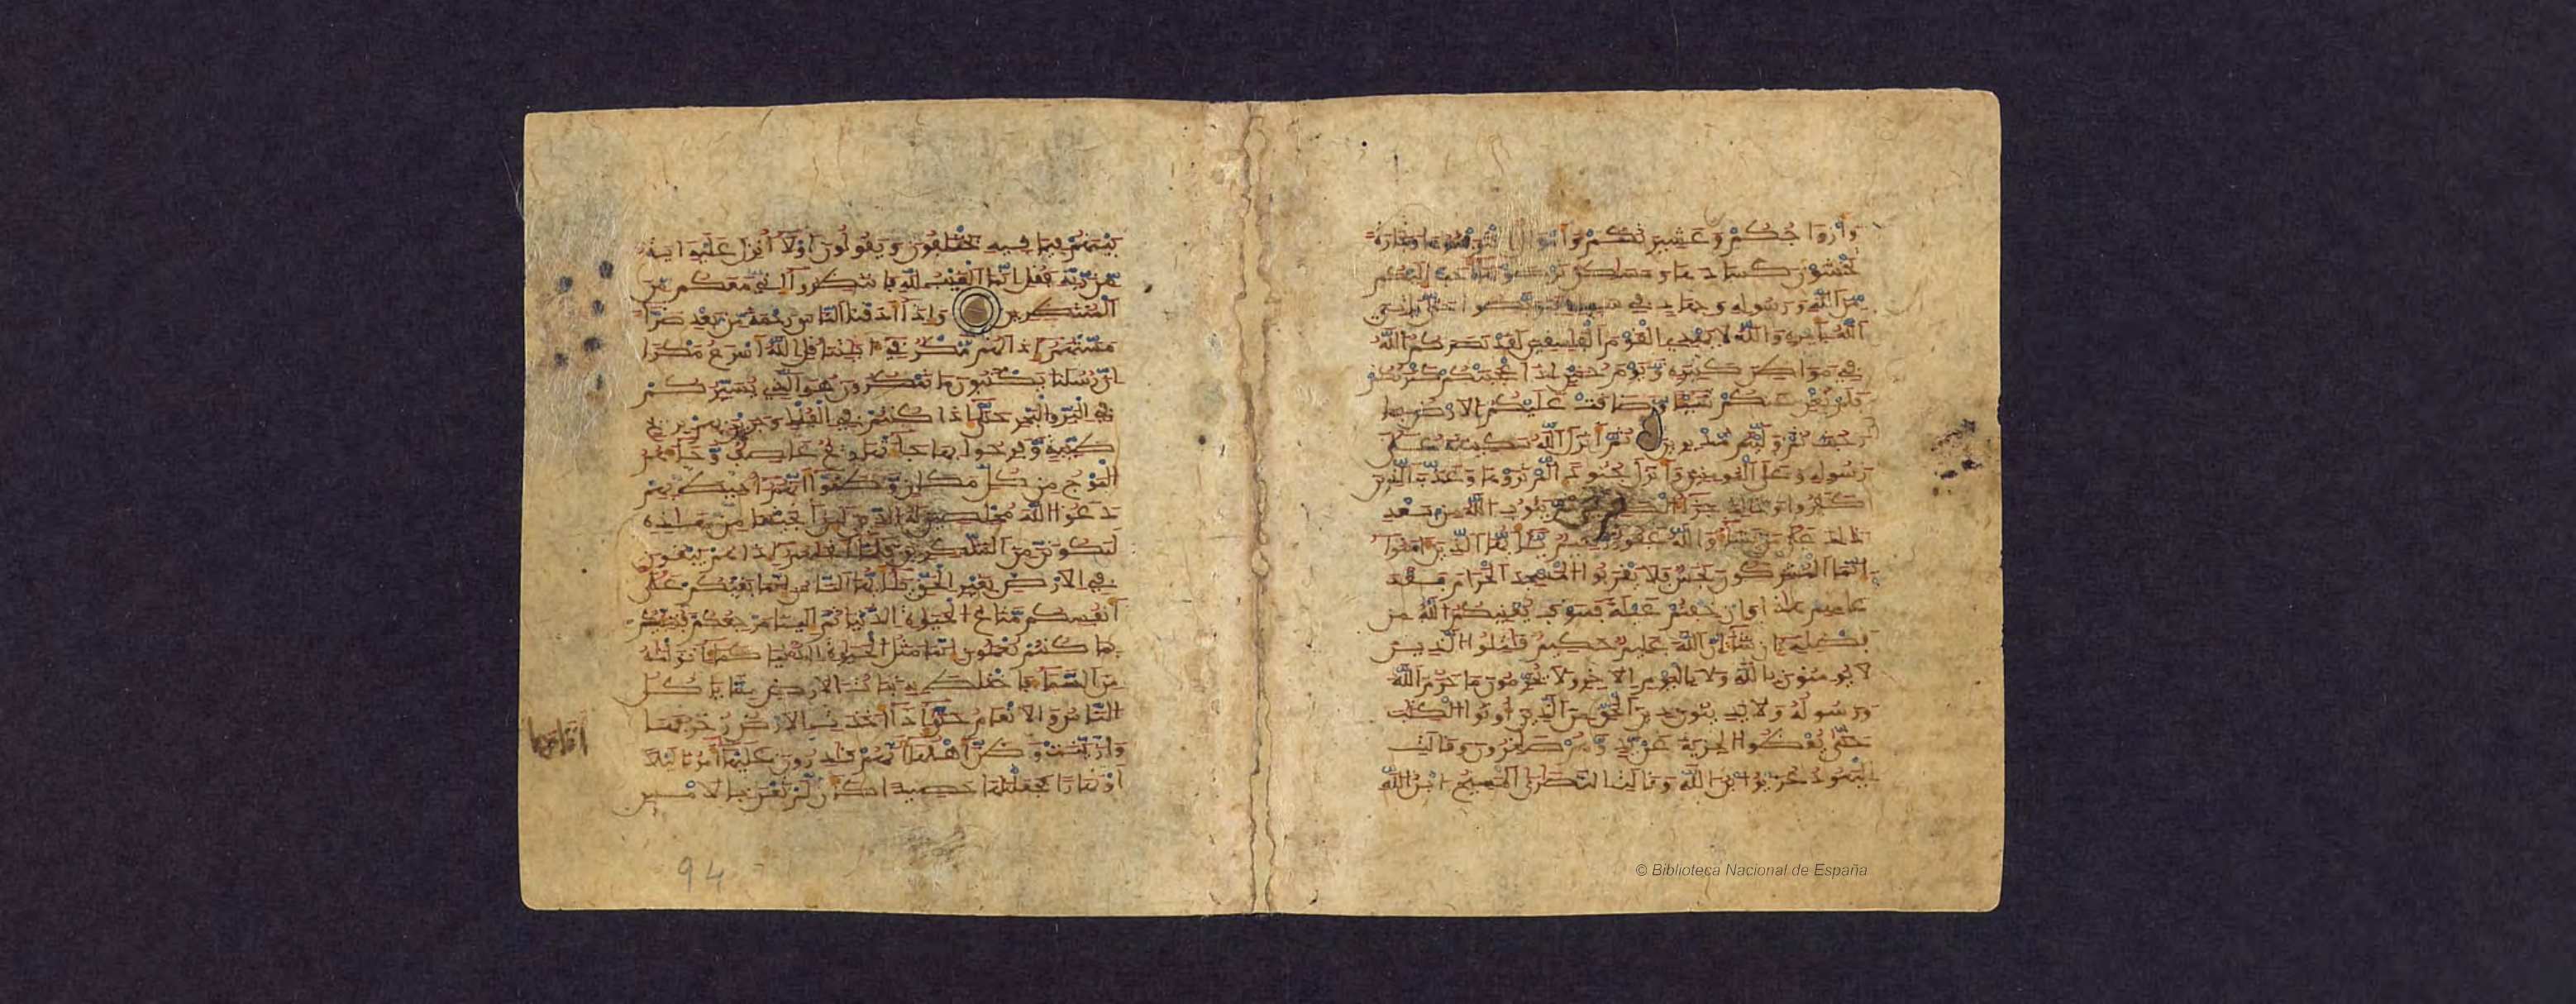 وَأَزْوَاجُكُمْ وَعَشِيرَتُكُمْ وَأَمْوَالٌ اقْتَرَفْتُمُوهَا وَتِجَارَةٌ
تَخْشَوْنَ كَسَادَهَا وَمَسَاكِنُ تَرْضَوْنَهَا أَحَبَّ إِلَيْكُم
مِّنَ اللَّهِ وَرَسُولِهِ وَجِهَادٍ فِي سَبِيلِهِ فَتَرَبَّصُوا حَتَّىٰ يَأْتِيَ
اللَّهُ بِأَمْرِهِ وَاللَّهُ لَا يَهْدِي الْقَوْمَ الْفَاسِقِينَ لَقَدْ نَصَرَكُمُ اللَّهُ
فِي مَوَاطِنَ كَثِيرَةٍ وَيَوْمَ حُنَيْنٍ إِذْ أَعْجَبَتْكُمْ كَثْرَتُكُمْ
فَلَمْ تُغْنِ عَنكُمْ شَيْئًا وَضَاقَتْ عَلَيْكُمُ الْأَرْضُ بِمَا
رَحُبَتْ ثُمَّ وَلَّيْتُم مُّدْبِرِينَ ثُمَّ أَنزَلَ اللَّهُ سَكِينَتَهُ عَلَىٰ
رَسُولِهِ وَعَلَى الْمُؤْمِنِينَ وَأَنزَلَ جُنُودًا لَّمْ تَرَوْهَا وَعَذَّبَ الَّذِينَ
كَفَرُوا وَذَٰلِكَ جَزَاءُ الْكَافِرِينَ ثُمَّ يَتُوبُ اللَّهُ مِن بَعْدِ
ذَٰلِكَ عَلَىٰ مَن يَشَاءُ وَاللَّهُ غَفُورٌ رَّحِيمٌ يَا أَيُّهَا الَّذِينَ آمَنُوا
إِنَّمَا الْمُشْرِكُونَ نَجَسٌ فَلَا يَقْرَبُوا الْمَسْجِدَ الْحَرَامَ بَعْدَ
عَامِهِمْ هَٰذَا وَإِنْ خِفْتُمْ عَيْلَةً فَسَوْفَ يُغْنِيكُمُ اللَّهُ مِن
فَضْلِهِ إِن شَاءَ إِنَّ اللَّهَ عَلِيمٌ حَكِيمٌ قَاتِلُوا الَّذِينَ
لَا يُؤْمِنُونَ بِاللَّهِ وَلَا بِالْيَوْمِ الْآخِرِ وَلَا يُحَرِّمُونَ مَا حَرَّمَ اللَّهُ
وَرَسُولُهُ وَلَا يَدِينُونَ دِينَ الْحَقِّ مِنَ الَّذِينَ أُوتُوا الْكِتَابَ
حَتَّىٰ يُعْطُوا الْجِزْيَةَ عَن يَدٍ وَهُمْ صَاغِرُونَ وَقَالَتِ
الْيَهُودُ عُزَيْرٌ ابْنُ اللَّهِ وَقَالَتِ النَّصَارَى الْمَسِيحُ ابْنُ اللَّهِ
بَيْنَهُمْ فِيمَا فِيهِ يَخْتَلِفُونَ وَيَقُولُونَ لَوْلَا أُنزِلَ عَلَيْهِ آيَةٌ
مِّن رَّبِّهِ فَقُلْ إِنَّمَا الْغَيْبُ لِلَّهِ فَانتَظِرُوا إِنِّي مَعَكُم مِّنَ
الْمُنتَظِرِينَ وَإِذَا أَذَقْنَا النَّاسَ رَحْمَةً مِّن بَعْدِ ضَرَّاءَ
مَسَّتْهُمْ إِذَا لَهُم مَّكْرٌ فِي آيَاتِنَا قُلِ اللَّهُ أَسْرَعُ مَكْرًا
إِنَّ رُسُلَنَا يَكْتُبُونَ مَا تَمْكُرُونَ هُوَ الَّذِي يُسَيِّرُكُمْ
فِي الْبَرِّ وَالْبَحْرِ حَتَّىٰ إِذَا كُنتُمْ فِي الْفُلْكِ وَجَرَيْنَ بِهِم بِرِيحٍ
طَيِّبَةٍ وَفَرِحُوا بِهَا جَاءَتْهَا رِيحٌ عَاصِفٌ وَجَاءَهُمُ
الْمَوْجُ مِن كُلِّ مَكَانٍ وَظَنُّوا أَنَّهُمْ أُحِيطَ بِهِمْ
دَعَوُا اللَّهَ مُخْلِصِينَ لَهُ الدِّينَ لَئِنْ أَنجَيْتَنَا مِنْ هَٰذِهِ
لَنَكُونَنَّ مِنَ الشَّاكِرِينَ فَلَمَّا أَنجَاهُمْ إِذَا هُمْ يَبْغُونَ
فِي الْأَرْضِ بِغَيْرِ الْحَقِّ يَا أَيُّهَا النَّاسُ إِنَّمَا بَغْيُكُمْ عَلَىٰ
أَنفُسِكُم مَّتَاعُ الْحَيَاةِ الدُّنْيَا ثُمَّ إِلَيْنَا مَرْجِعُكُمْ فَنُنَبِّئُكُم
بِمَا كُنتُمْ تَعْمَلُونَ إِنَّمَا مَثَلُ الْحَيَاةِ الدُّنْيَا كَمَاءٍ أَنزَلْنَاهُ
مِنَ السَّمَاءِ فَاخْتَلَطَ بِهِ نَبَاتُ الْأَرْضِ مِمَّا يَأْكُلُ
النَّاسُ وَالْأَنْعَامُ حَتَّىٰ إِذَا أَخَذَتِ الْأَرْضُ زُخْرُفَهَا
وَازَّيَّنَتْ وَظَنَّ أَهْلُهَا أَنَّهُمْ قَادِرُونَ عَلَيْهَا أَتَاهَا أَمْرُنَا لَيْلًا
أَوْ نَهَارًا فَجَعَلْنَاهَا حَصِيدًا كَأَن لَّمْ تَغْنَ بِالْأَمْسِ
أَتَاهَا
94
© Biblioteca Nacional de España